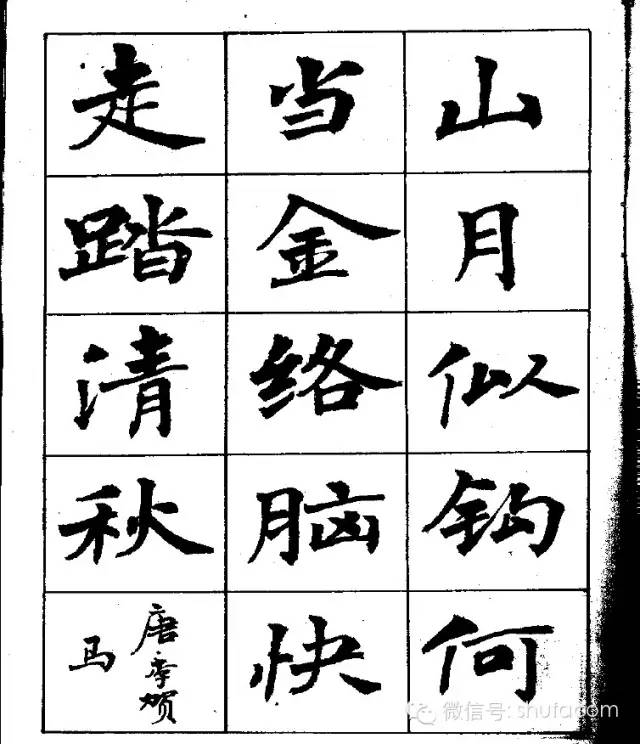 山月似钩何
当金络脑快
走踏清秋
唐李贺
马
微信号: shufacom